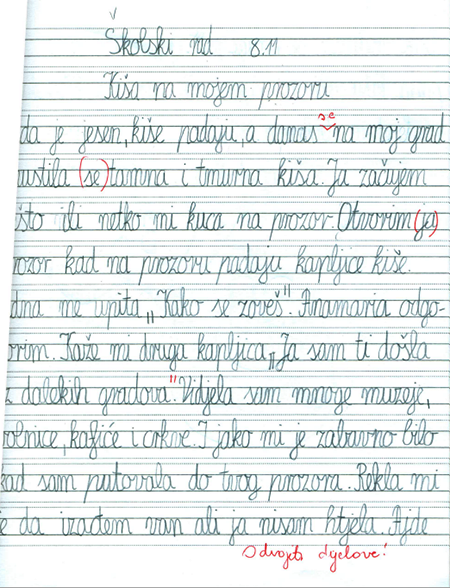 Školski rad 8.11
Kiša na mojem prozoru
da je jesen, kiše padaju, a danas se na moj grad
ustila (se) tamna i tmurna kiša. Ja začujem
što ili netko mi kuca na prozor. Otvorim (je)
rozor kad na prozoru padaju kapljice kiše.
dna me upita „Kako se zoveš". Anamaria odgo-
orim. Kaže mi druga kapljica „Ja sam ti došla
z dalekih gradova." Vidjela sam mnoge muzeje,
olnice, kafiće i crkve. I jako mi je zabavno bilo
kad sam putovala do tvog prozora. Rekla mi
je da izađem van ali ja nisam htjela. Ajde
Odvojiti dijelove!